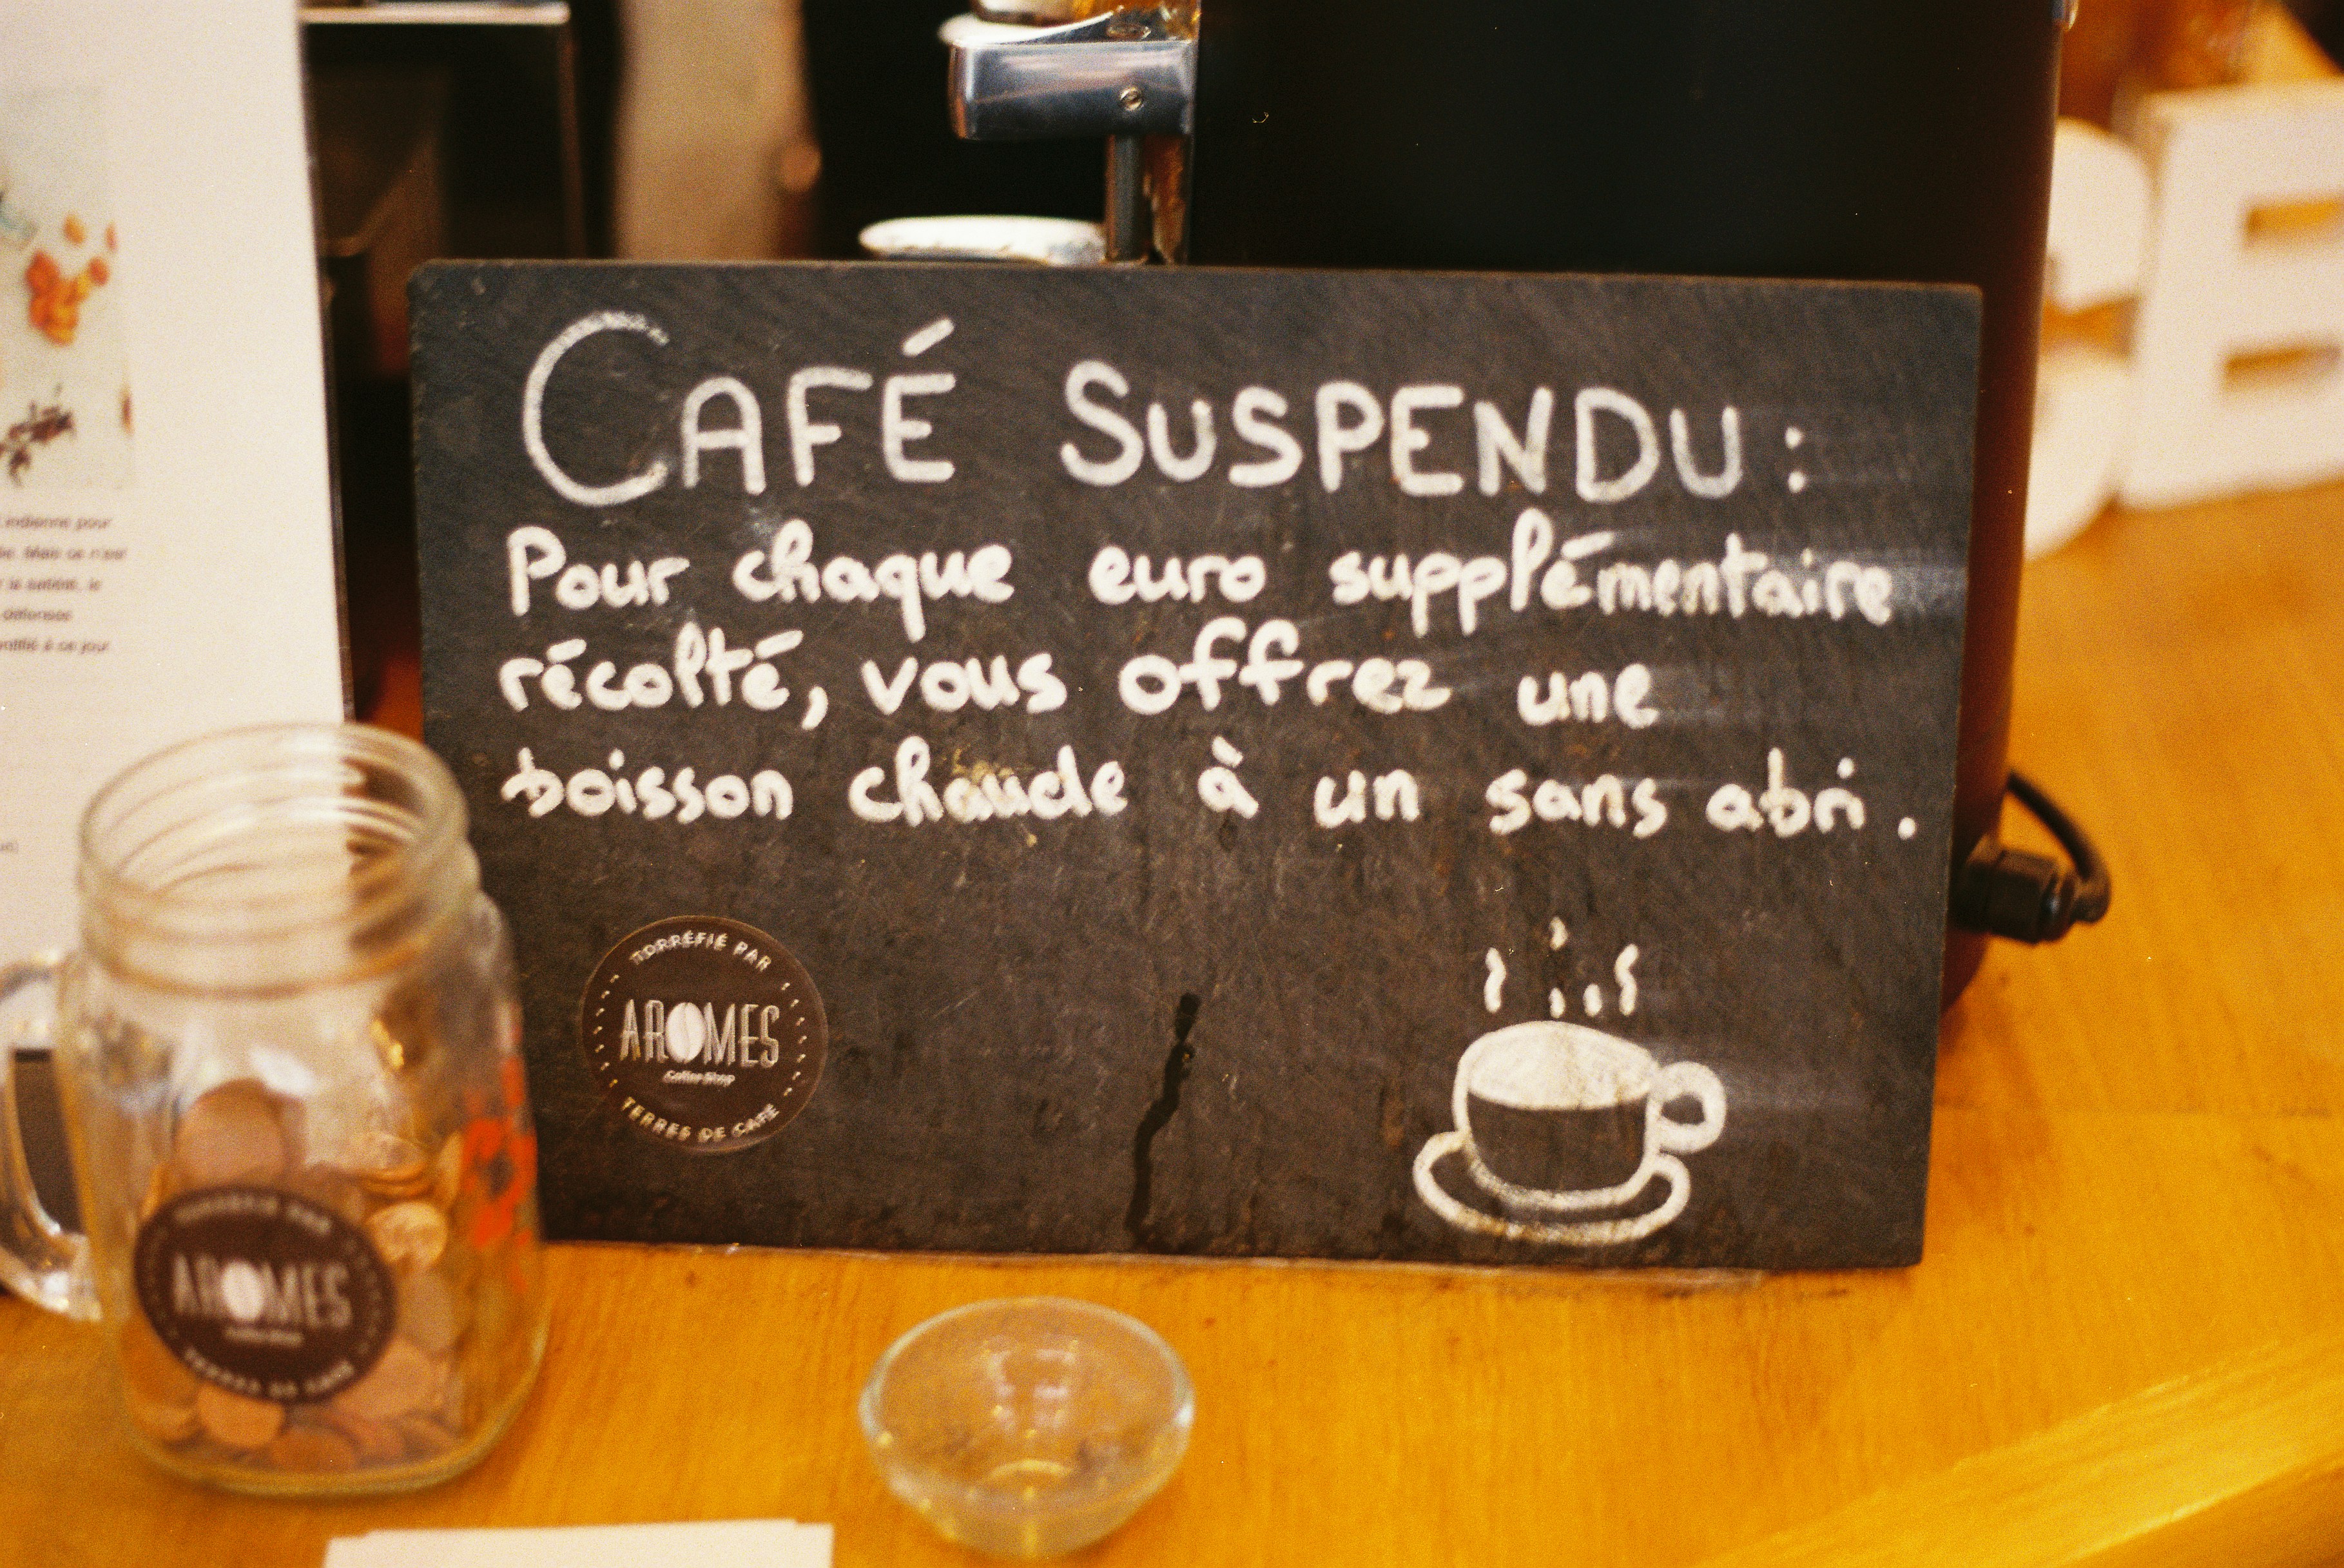 CAFÉ SUSPENDU :
Pour chaque euro supplémentaire
récolté, vous offrez une
boisson chaude à un sans abri.
TORRÉFIÉ PAR
AROMES
Coffee Shop
TERRES DE CAFÉ
AROMES
TERRES DE CAFÉ
indienne pour
Mais ce n'est
la satiété, le
à ce jour